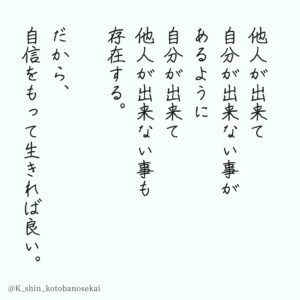 他人が出来て
自分が出来ない事が
あるように
自分が出来て
他人が出来ない事も
存在する。
だから、
自信をもって生きれば良い。
@K_shin_kotobanosekai